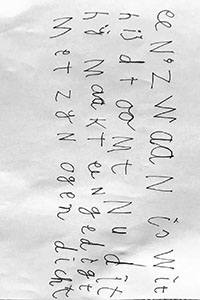 eeN ZWaaN is Wit
hij dtooMt Nu dit
hij Maakt een gedigt
Met zyN ogen dicht